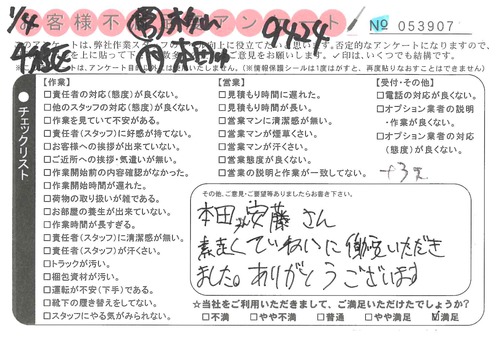 1/4
お客様不満アンケート
№ 053907
9424
このアンケートは、弊社作業スタッフの
向上に役立てたいと思います。否定的なアンケートになりますので、
上に貼って下
ご意見をお願いします。✓印は、いくつでも結構です。
(※情報保護シールは1度はがすと、再度貼りなおすことはできません)
●チェックリスト
【作業】
□責任者の対応(態度)が良くない。
□他のスタッフの対応(態度)が良くない。
□作業を見ていて不安がある。
□責任者(スタッフ)に好感が持てない。
□お客様への挨拶が出来ていない。
□ご近所への挨拶・気遣いが無い。
□作業開始前の内容確認がなかった。
□作業開始時間が遅れた。
□荷物の取り扱いが雑である。
□お部屋の養生が出来ていない。
□作業時間が長すぎる。
□責任者(スタッフ)に清潔感が無い。
□責任者(スタッフ)が汗くさい。
□トラックが汚い。
□梱包資材が汚い。
□運転が不安(下手)である。
□靴下の履き替えをしてない。
□スタッフにやる気がみられない。
【営業】
□見積もり時間に遅れた。
□見積もり時間が長い。
□営業マンに清潔感が無い。
□営業マンが煙草くさい。
□営業マンが汗くさい。
□営業態度が良くない。
□営業の説明と作業が一致してない。
【受付・その他】
□電話の対応が良くない。
□オプション業者の説明
・作業が良くない。
□オプション業者の対応
(態度)が良くない。
+3
その他、ご意見・ご要望等ありましたらお書き下さい。
本田 安藤 さん
素早くていねいに働いていただき
ました。ありがとうございます
☆当社をご利用いただきまして、ご満足いただけたでしょうか?
□不満 □やや不満 □普通 □やや満足 ☑満足